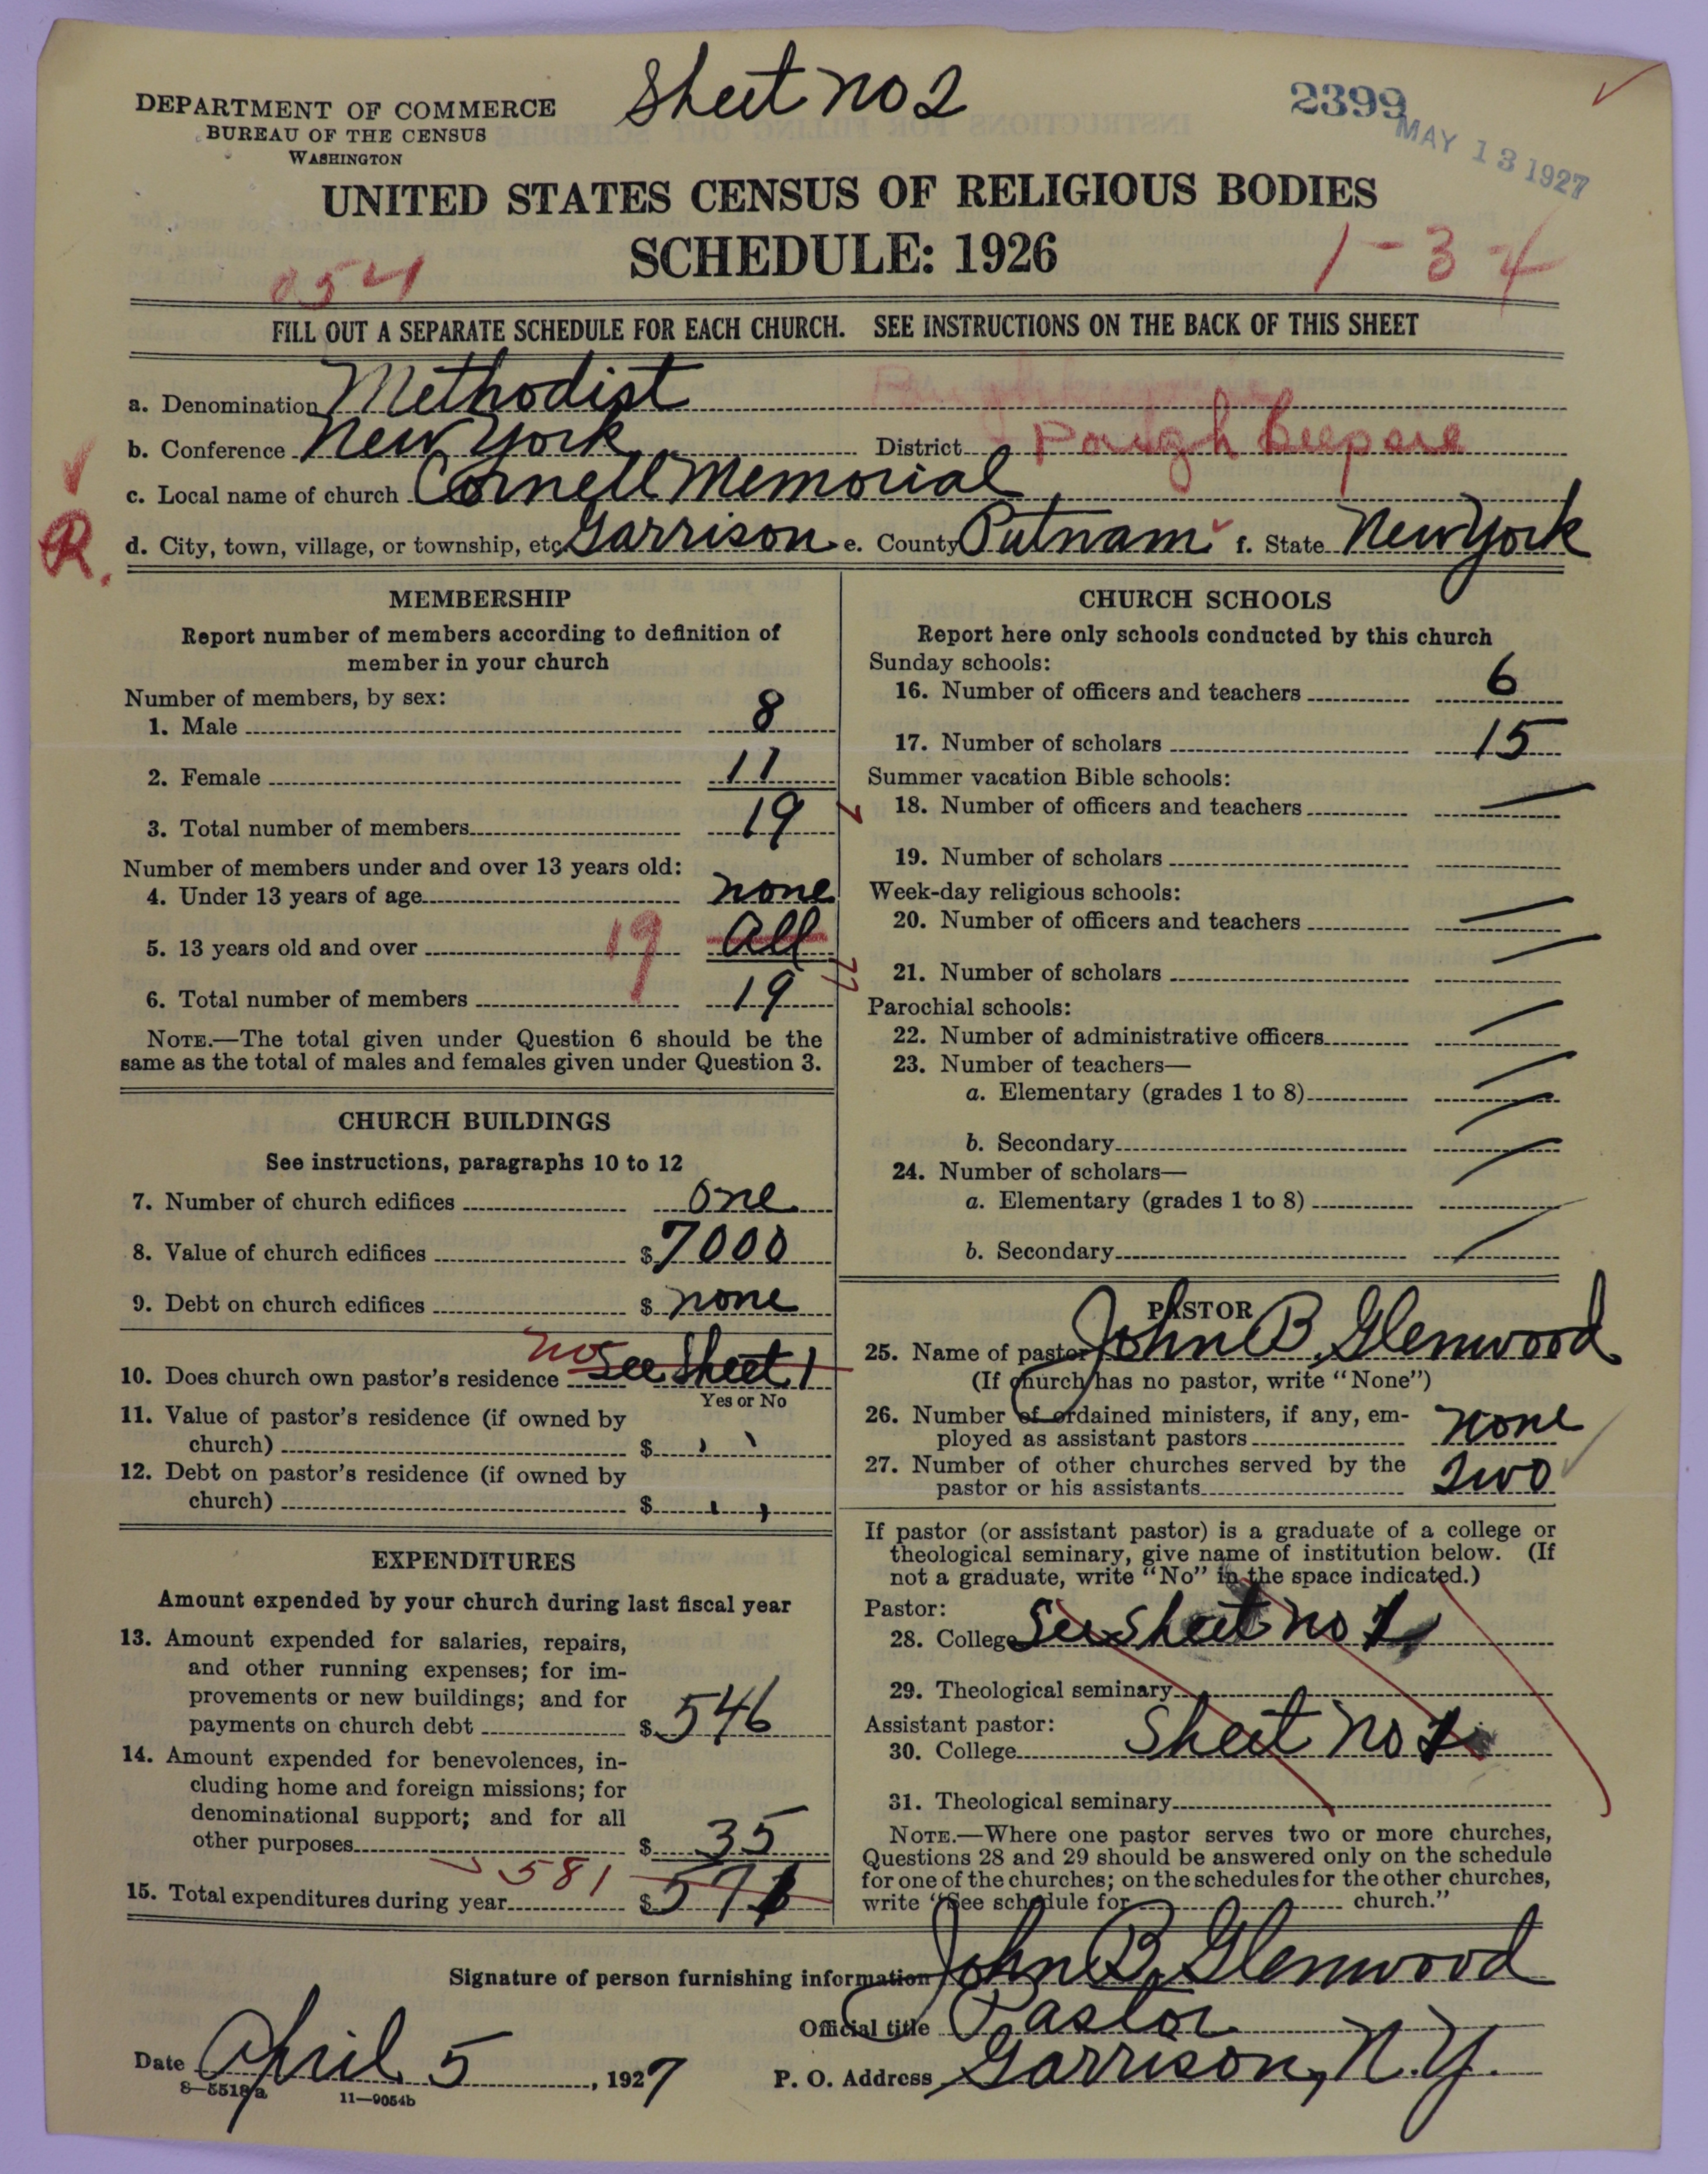 Sheet no 2
DEPARTMENT OF COMMERCE
BUREAU OF THE CENSUS
WASHINGTON
2399
MAY 13 1927
UNITED STATES CENSUS OF RELIGIOUS BODIES
SCHEDULE: 1926
054
1-34
FILL OUT A SEPARATE SCHEDULE FOR EACH CHURCH. SEE INSTRUCTIONS ON THE BACK OF THIS SHEET
a. Denomination Methodist
b. Conference New York District Poughkeepsie
c. Local name of church Cornell Memorial
R. d. City, town, village, or township, etc. Garrison e. County Putnam f. State New York
MEMBERSHIP
Report number of members according to definition of
member in your church
Number of members, by sex:
1. Male 8
2. Female 11
3. Total number of members 19
Number of members under and over 13 years old:
4. Under 13 years of age none
5. 13 years old and over 19 all
6. Total number of members 19
NOTE.—The total given under Question 6 should be the
same as the total of males and females given under Question 3.
CHURCH BUILDINGS
See instructions, paragraphs 10 to 12
7. Number of church edifices one
8. Value of church edifices $ 7000
9. Debt on church edifices $ none
10. Does church own pastor's residence no See Sheet 1
Yes or No
11. Value of pastor's residence (if owned by
church) $ " "
12. Debt on pastor's residence (if owned by
church) $ " "
EXPENDITURES
Amount expended by your church during last fiscal year
13. Amount expended for salaries, repairs,
and other running expenses; for im-
provements or new buildings; and for
payments on church debt $ 546
14. Amount expended for benevolences, in-
cluding home and foreign missions; for
denominational support; and for all
other purposes $ 35
581
15. Total expenditures during year $ 571
CHURCH SCHOOLS
Report here only schools conducted by this church
Sunday schools:
16. Number of officers and teachers 6
17. Number of scholars 15
Summer vacation Bible schools:
18. Number of officers and teachers
19. Number of scholars
Week-day religious schools:
20. Number of officers and teachers
21. Number of scholars
Parochial schools:
22. Number of administrative officers
23. Number of teachers—
a. Elementary (grades 1 to 8)
b. Secondary
24. Number of scholars—
a. Elementary (grades 1 to 8)
b. Secondary
PASTOR
25. Name of pastor John B. Glenwood
(If church has no pastor, write "None")
26. Number of ordained ministers, if any, em-
ployed as assistant pastors none
27. Number of other churches served by the
pastor or his assistants Two
If pastor (or assistant pastor) is a graduate of a college or
theological seminary, give name of institution below. (If
not a graduate, write "No" in the space indicated.)
Pastor:
28. College See Sheet no 1
29. Theological seminary
Assistant pastor:
30. College Sheet no 1
31. Theological seminary
NOTE.—Where one pastor serves two or more churches,
Questions 28 and 29 should be answered only on the schedule
for one of the churches; on the schedules for the other churches,
write "See schedule for church."
Signature of person furnishing information John B. Glenwood
Official title Pastor
Date April 5, 1927 P. O. Address Garrison, N.Y.
8—5518a 11—9054b